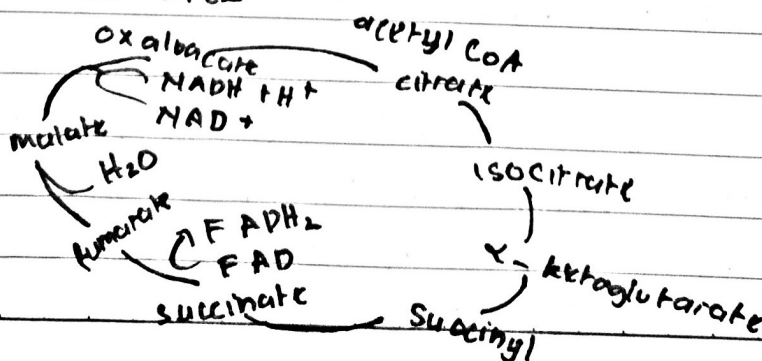 acetyl CoA
oxaloacate
citrate
NADH + H+
NAD+
malate
H2O
isocitrate
fumarate
FADH2
FAD
α- ketoglutarate
succinate
Succinyl